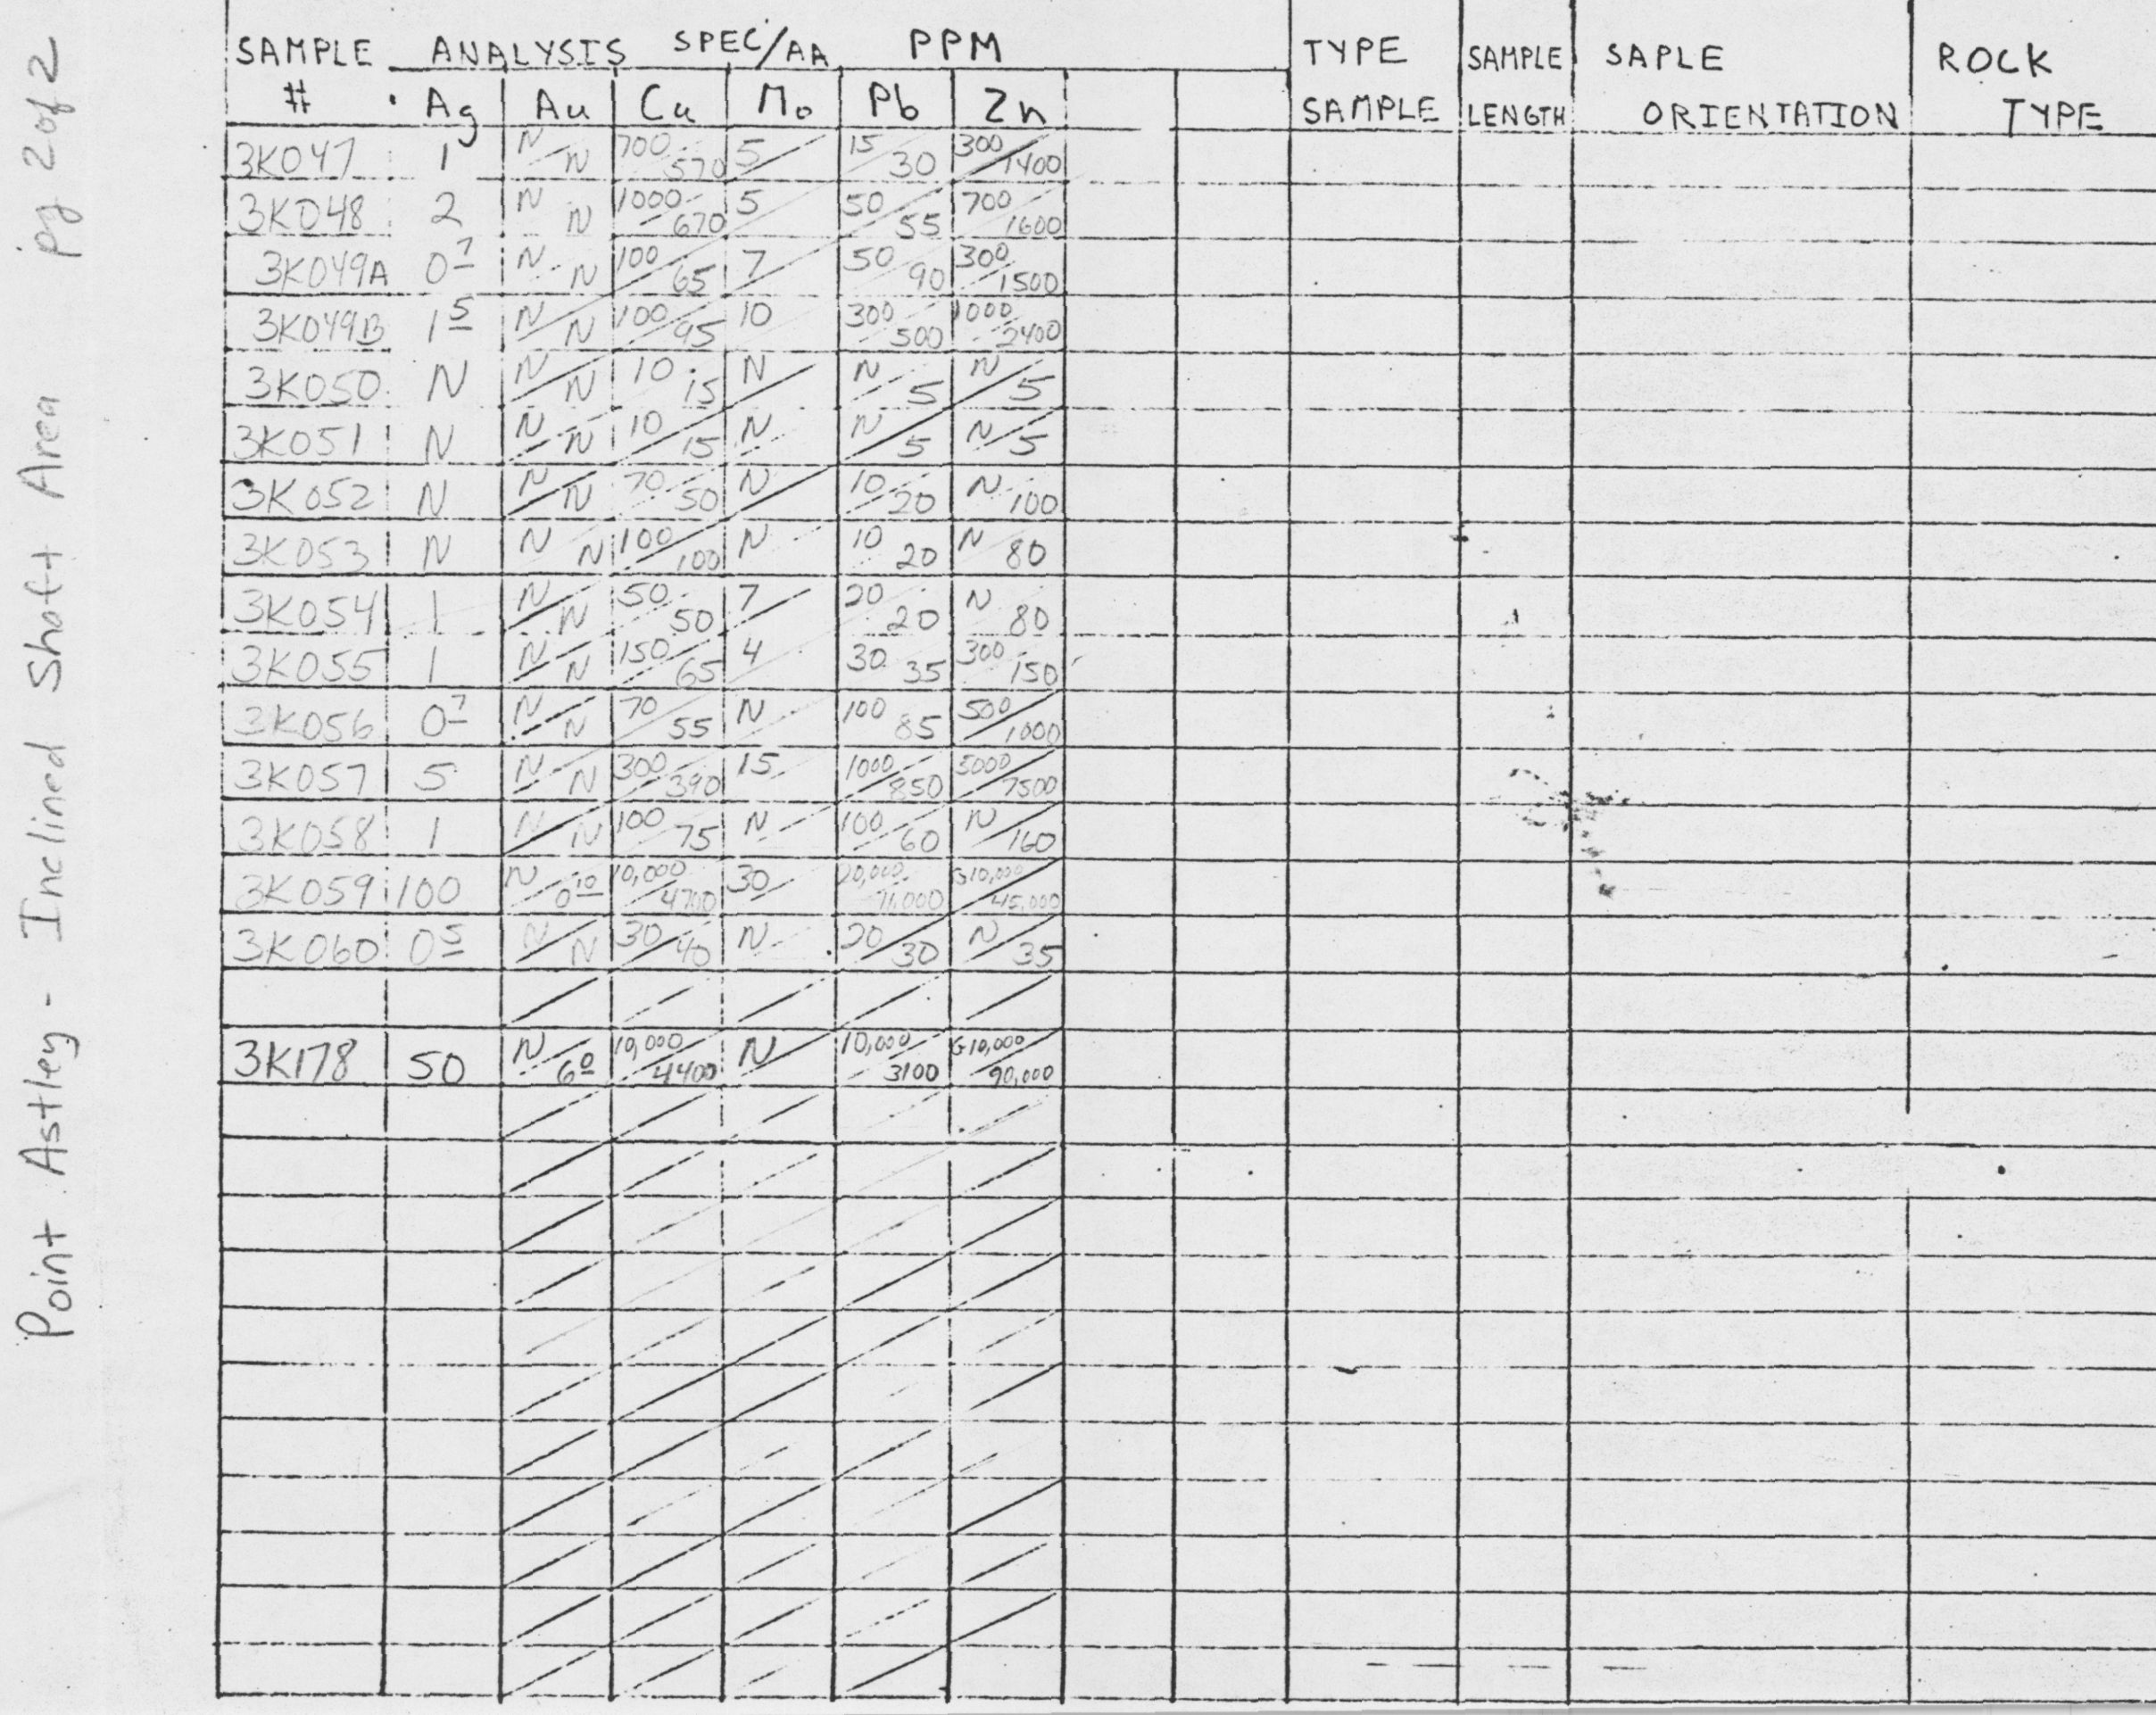 Point Astley - Inclined Shaft Area pg 2 of 2
SAMPLE # ANALYSIS SPEC/AA PPM TYPE SAMPLE SAMPLE LENGTH SAPLE ORIENTATION ROCK TYPE
Ag Au Cu Mo Pb Zn
3K047 1 N/N 700/570 5/ 15/30 300/1400
3K048 2 N/N 1000/670 5/ 50/55 700/1600
3K049A 0.7 N/N 100/65 7/ 50/90 300/1500
3K049B 1.5 N/N 100/95 10 300/500 1000/2400
3K050 N N/N 10/15 N/ N/5 N/5
3K051 N N/N 10/15 N/ N/5 N/5
3K052 N N/N 70/50 N/ 10/20 N/100
3K053 N N/N 100/100 N/ 10/20 N/80
3K054 1 N/N 50/50 7/ 20/20 N/80
3K055 1 N/N 150/65 4/ 30/35 300/150
3K056 0.7 N/N 70/55 N/ 100/85 500/1000
3K057 5 N/N 300/390 15/ 1000/850 5000/7500
3K058 1 N/N 100/75 N/ 100/60 N/160
3K059 100 N/0.10 10,000/4700 30/ 20,000/ G10,000/45,000
3K060 0.5 N/N 30/40 N/ 20/30 N/35
3K178 50 N/6.0 10,000/4400 N/ 10,000/3100 G10,000/90,000